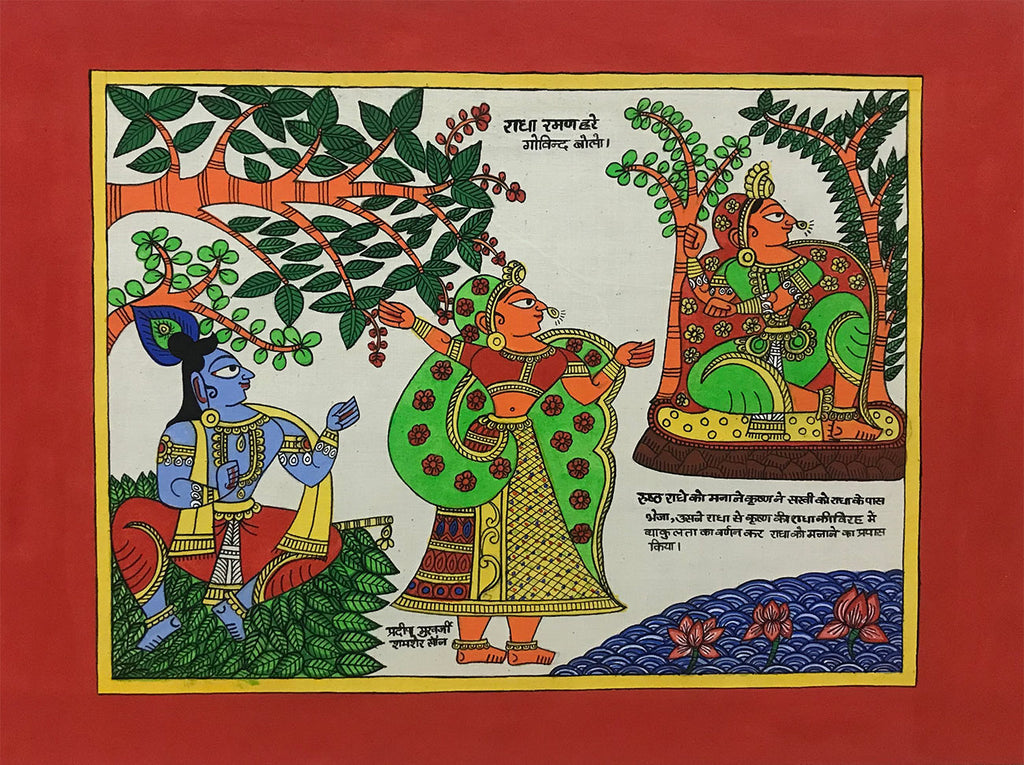 राधा रमण हरे
गोविन्द बोलो।
रुष्ठ राधे को मनाने कृष्ण ने सखी को राधा के पास
भेजा, उसने राधा से कृष्ण की राधा की विरह में
व्याकुलता का वर्णन कर राधा को मनाने का प्रयास
किया।
प्रदीप मुखर्जी